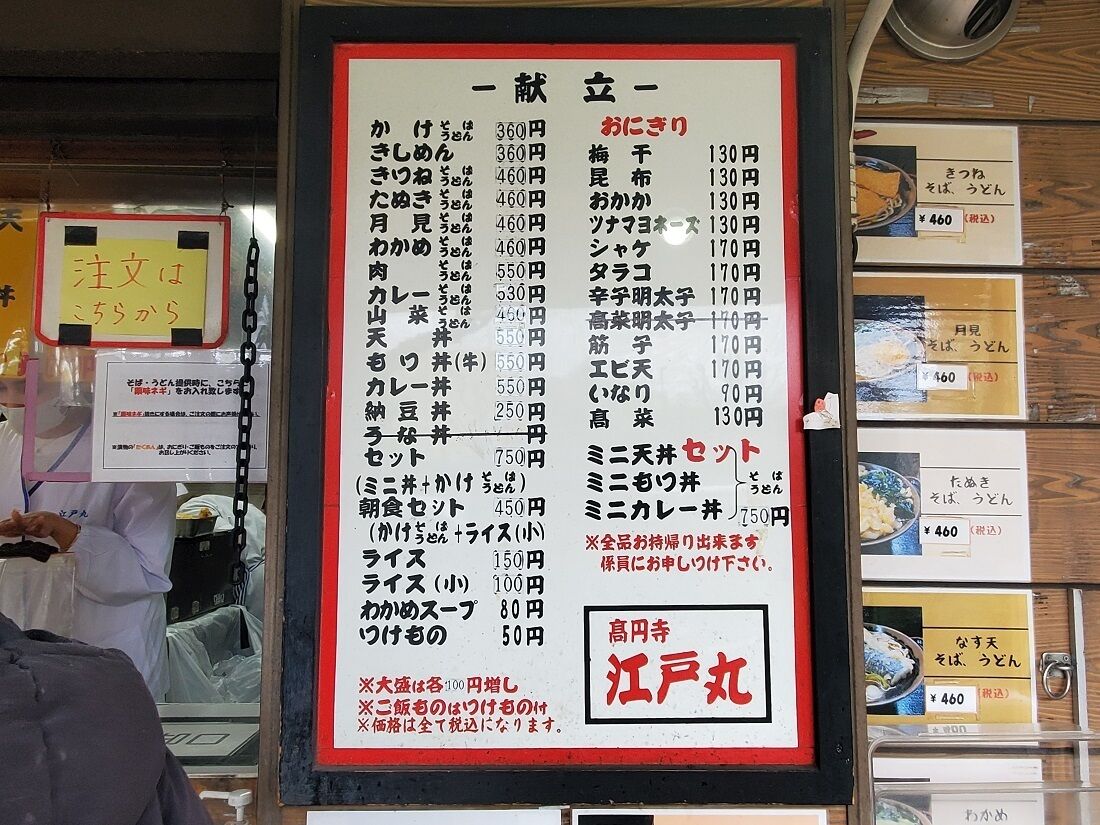 一 献 立 一
かけ そば うどん 360円
きしめん 360円
きつね そば うどん 460円
たぬき そば うどん 460円
月見 そば うどん 460円
わかめ そば うどん 460円
肉 そば うどん 550円
カレー そば うどん 530円
山菜 そば うどん 460円
天丼 550円
もつ丼(牛) 550円
カレー丼 550円
納豆丼 250円
うな丼 円
セット 750円
(ミニ丼+かけ そば うどん)
朝食セット 450円
(かけ そば うどん +ライス(小)
ライス 150円
ライス(小) 100円
わかめスープ 80円
つけもの 50円
※大盛は各100円増し
※ご飯ものはつけもの付
※価格は全て税込になります。
おにぎり
梅干 130円
昆布 130円
おかか 130円
ツナマヨネーズ 130円
シャケ 170円
タラコ 170円
辛子明太子 170円
高菜明太子 170円
筋子 170円
エビ天 170円
いなり 90円
高菜 130円
ミニ天丼 セット
ミニもつ丼 そば うどん
ミニカレー丼 750円
※全品お持帰り出来ます
係員にお申しつけ下さい。
高円寺
江戸丸
注文は
こちらから
そば・うどん提供時に、こちら
「薬味ネギ」をお入れ致します
江戸丸
天
丼
きつね
そば、うどん
¥460 (税込)
月見
そば、うどん
¥460 (税込)
たぬき
そば、うどん
¥460 (税込)
なす天
そば、うどん
¥460 (税込)
わかめ